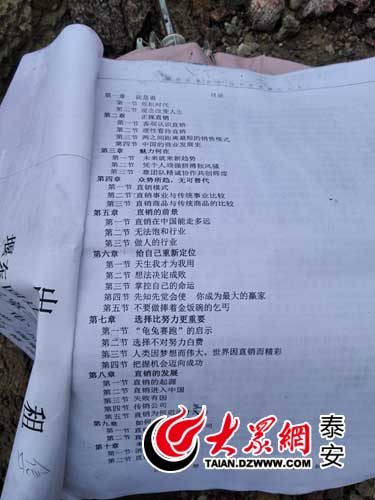 目录
第一章 前是谁
第一节 危机时代
第二节 观念改变人生
第二章 正视直销
第一节 客观认识直销
第二节 理性看待直销
第三节 两点之间距离最短的销售模式
第四节 中国的商业发展史
第三章 魅力何在
第一节 未来就来新趋势
第二节 凭个人顽强拼搏独风骚
第三节 靠团队精诚协作共创辉煌
第四章 众势所趋，无可替代
第一节 直销模式
第二节 直销事业与传统事业比较
第三节 直销商品与传统商品的比较
第五章 直销的前景
第一节 直销在中国能走多远
第二节 无法饱和行业
第三节 做人的行业
第六章 给自己重新定位
第一节 天生我才为我用
第二节 想法决定成败
第三节 掌控自己的命运
第四节 先知先觉会使 你成为最大的赢家
第五节 不要做捧着金饭碗的乞丐
第七章 选择比努力更重要
第一节 “龟兔赛跑”的启示
第二节 选择不对努力白费
第三节 人类因梦想而伟大，世界因直销而精彩
第四节 把握机会迈向成功
第八章 直销的发展
第一节 直销的起源
第二节 直销进入中国
第三节 失败有因
第四节 传销公司
第五节 直销为何
第九章 如何
第一节 直
第二节 直
第十章
第一节
出
租
大众網 泰安
TAIAN.DZWWW.COM